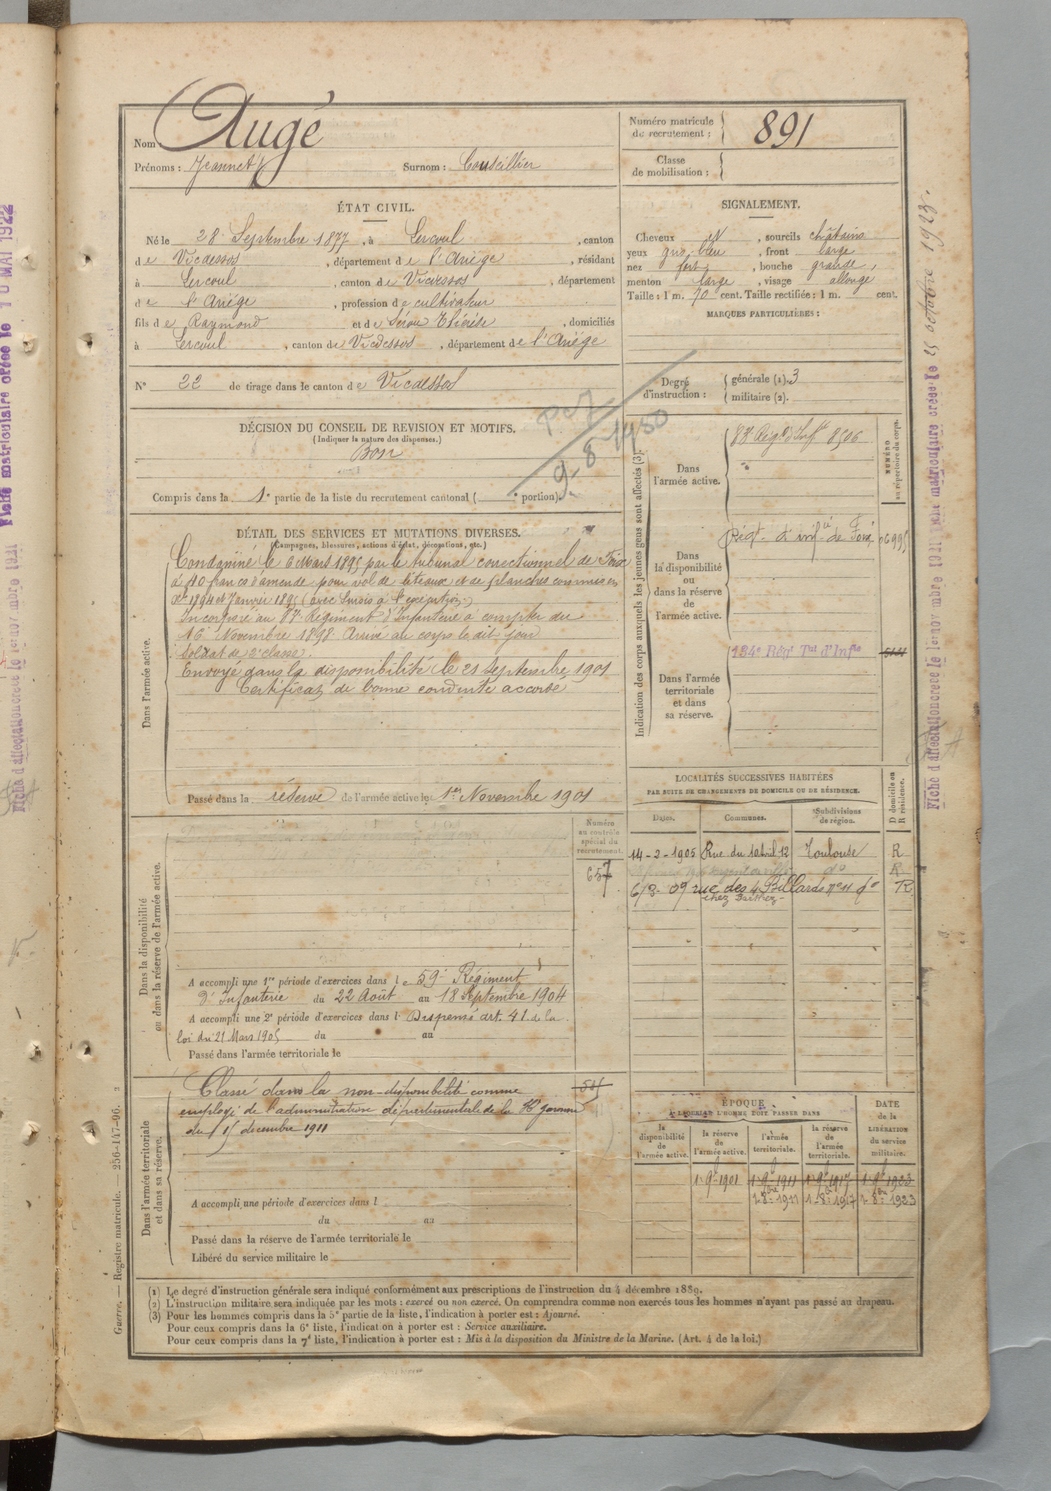 Nom Augé
Prénoms : Jeannet Surnom : Couseillier
Numéro matricule de recrutement : 891
Classe de mobilisation :
ÉTAT CIVIL.
Né le 28 Septembre 1877, à Lercoul, canton
de Vicdessos, département de l'Ariège, résidant
à Lercoul, canton de Vicdessos, département
de l'Ariège, profession de cultivateur
fils de Raymond et de Séron Thérèse, domiciliés
à Lercoul, canton de Vicdessos, département de l'Ariège
N° 22 de tirage dans le canton de Vicdessos
SIGNALEMENT.
Cheveux et, sourcils châtains
yeux gris bleu, front large
nez fort, bouche grande,
menton large, visage allongé
Taille : 1 m. 70 cent. Taille rectifiée : 1 m. cent.
MARQUES PARTICULIÈRES :
Degré d'instruction : générale (1). 3
militaire (2).
DÉCISION DU CONSEIL DE REVISION ET MOTIFS.
(Indiquer la nature des dispenses.)
Bon
Compris dans la 1e partie de la liste du recrutement cantonal ( e portion).
9-8-1950
DÉTAIL DES SERVICES ET MUTATIONS DIVERSES.
(Campagnes, blessures, actions d'éclat, décorations, etc.)
Dans l'armée active.
Condamné le 6 Mars 1895 par le tribunal correctionnel de Foix
à 40 francs d'amende pour vol de liteaux et de planches commis en
Xe 1894 et Janvier 1895 (avec sursis à l'exécution.)
Incorporé au 87e Régiment d'Infanterie à compter du
16 Novembre 1898. Arrivé au corps le dit jour
Soldat de 2e classe.
Envoyé dans la disponibilité le 21 septembre 1901
Certificat de bonne conduite accordé
Passé dans la réserve de l'armée active le 1er Novembre 1901
Indication des corps auxquels les jeunes gens sont affectés (3).
NUMÉRO au répertoire du corps.
Dans l'armée active.
87 Régt d'Inft 8506
Dans la disponibilité ou dans la réserve de l'armée active.
Régt d'infie de Foix 06995
Dans l'armée territoriale et dans sa réserve.
134e Régt Tal d'Infie
LOCALITÉS SUCCESSIVES HABITÉES
PAR SUITE DE CHANGEMENTS DE DOMICILE OU DE RÉSIDENCE.
Dates. Communes. Subdivisions de région. D domicile ou R résidence.
14-2-1905 Rue du 10 avril 12 Toulouse R
do R
6/3-09 rue des 4 Billards n° 11 do R
chez Barthez
Dans la disponibilité ou dans la réserve de l'armée active.
Numéro au contrôle spécial du recrutement.
657
A accompli une 1re période d'exercices dans le 59e Régiment
d'Infanterie du 22 Août au 18 Septembre 1904
A accompli une 2e période d'exercices dans l Dispensé art. 41 de la
loi du 21 Mars 1905 du au
Passé dans l'armée territoriale le
Dans l'armée territoriale et dans sa réserve.
Classé dans la non-disponibilité comme
employé de l'administration départementale de la Hte Garonne
du 15 décembre 1911
A accompli une période d'exercices dans l
du au
Passé dans la réserve de l'armée territoriale le
Libéré du service militaire le
ÉPOQUE
A LAQUELLE L'HOMME DOIT PASSER DANS
la disponibilité de l'armée active. la réserve de l'armée active. l'armée territoriale. la réserve de l'armée territoriale.
DATE de la LIBÉRATION du service militaire.
1-9bre 1901 1-9bre 1911 1-9bre 1917 1-9bre 1923
1-8bre 1911 1-8bre 1917 1-8bre 1923
(1) Le degré d'instruction générale sera indiqué conformément aux prescriptions de l'instruction du 4 décembre 1889.
(2) L'instruction militaire sera indiquée par les mots : exercé ou non exercé. On comprendra comme non exercés tous les hommes n'ayant pas passé au drapeau.
(3) Pour les hommes compris dans la 5e partie de la liste, l'indication à porter est : Ajourné.
Pour ceux compris dans la 6e liste, l'indication à porter est : Service auxiliaire.
Pour ceux compris dans la 7e liste, l'indication à porter est : Mis à la disposition du Ministre de la Marine. (Art. 4 de la loi.)
Guerre. — Registre matricule. — 256-147-96.
Fiche matriculaire créée le 10 MAI 1922
Fiche d'affectation créée le 1er novembre 1921
Fiche matriculaire créée le 25 octobre 1923.